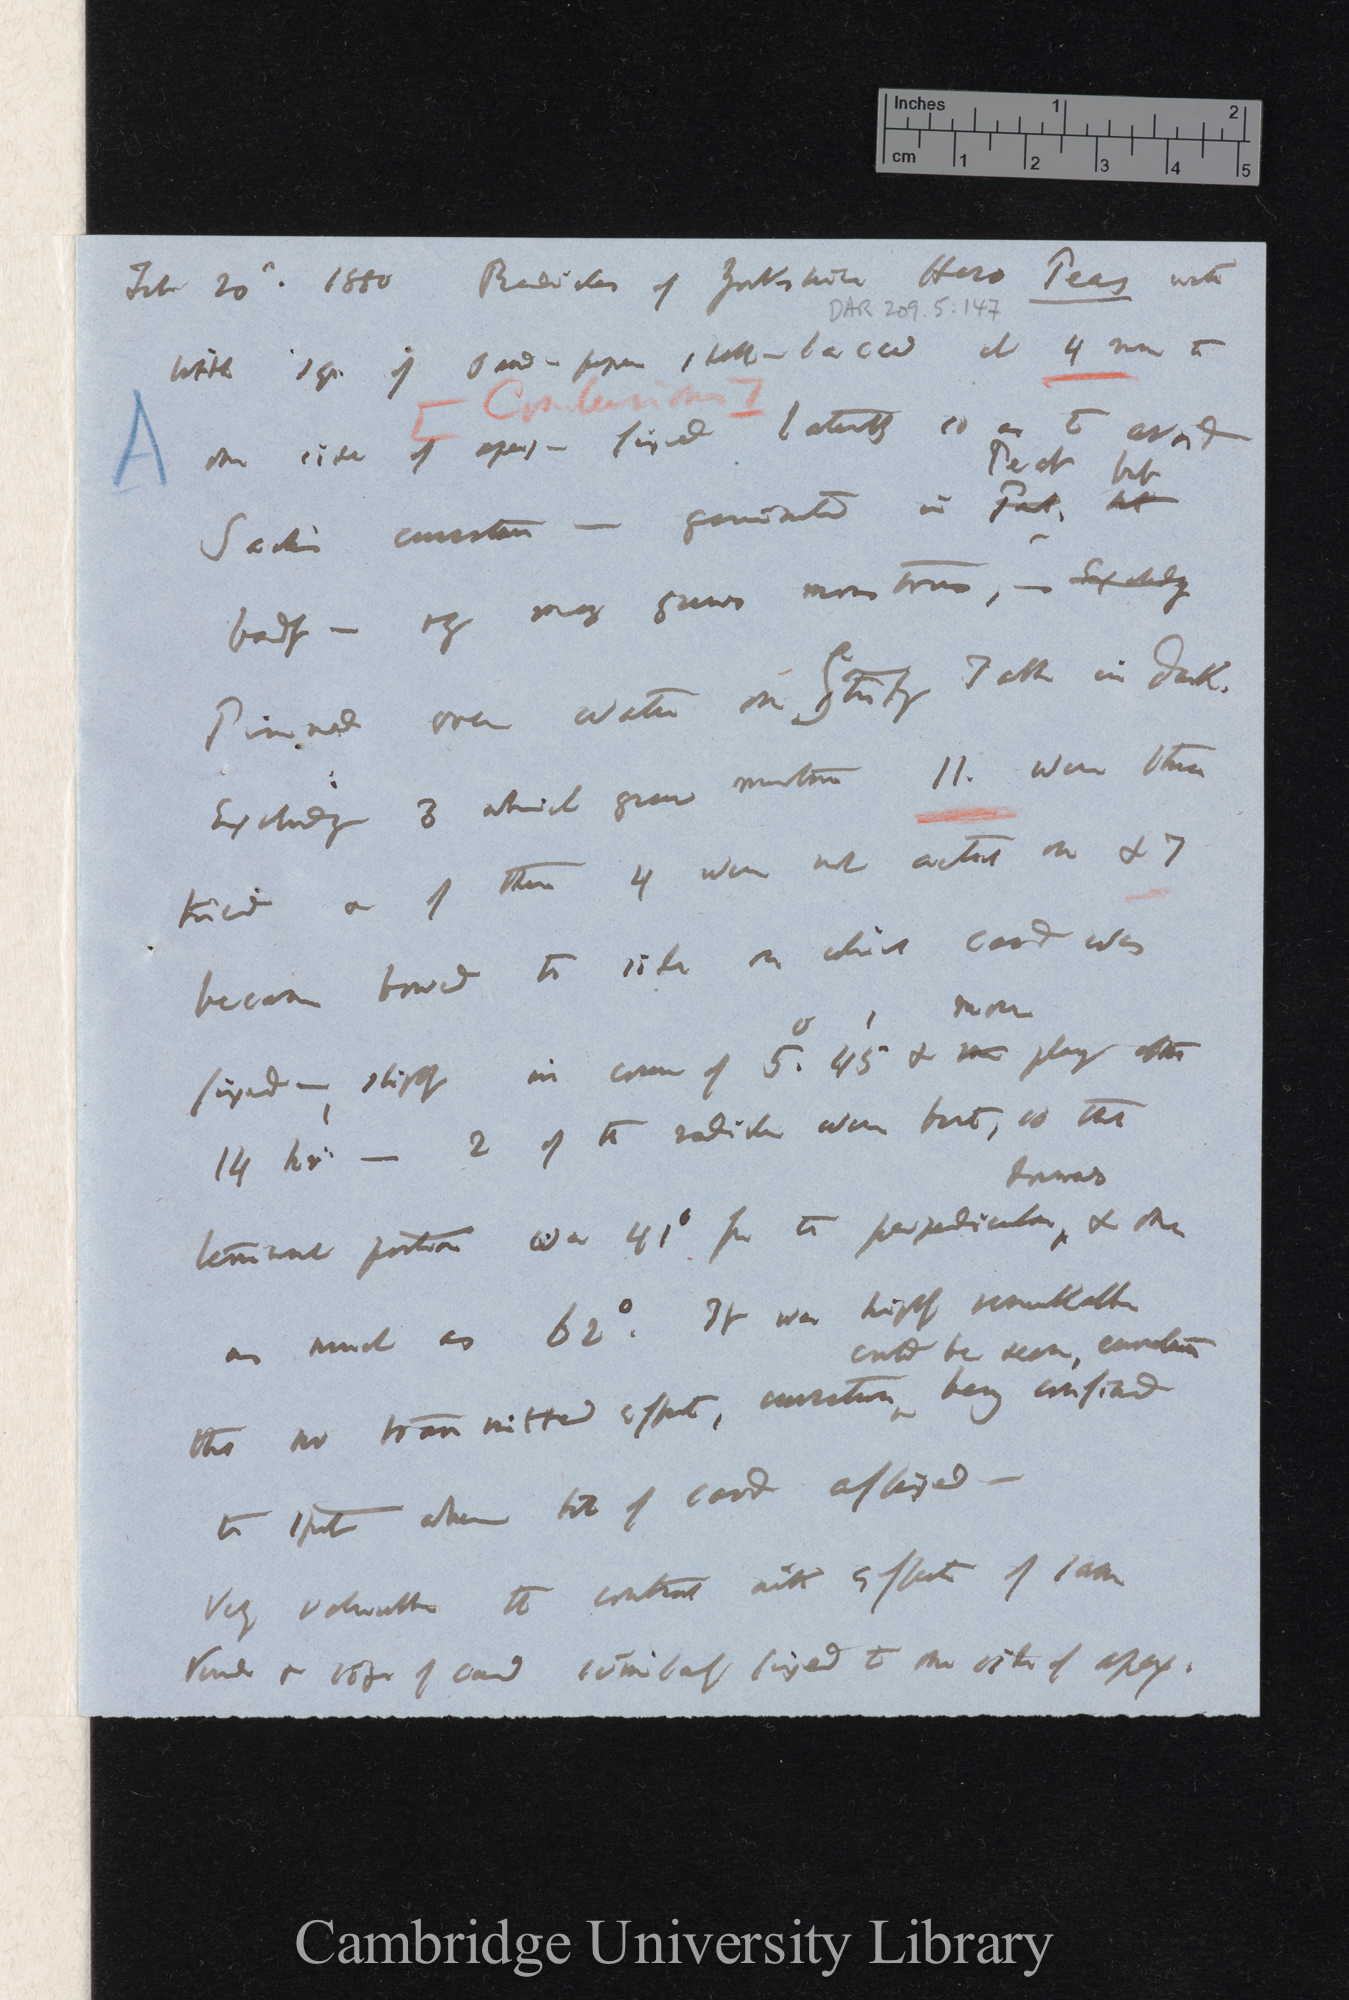 Inches 1 2
cm 1 2 3 4 5
Feb 20th. 1880 Radicles of Yorkshire Hero Peas with
DAR 209.5:147
with sqr. of sand-paper, shell-lacced at 4 mm to
[Conclusions]
A
one side of apex – fixed laterally so as to avoid
Peat but
Sachs' curvature — germinated in Peat, but
badly — & many grew monstrous, — Excluding
Pinned over water on Chimney Table in dark.
Excluding 3 which grew 11. were thus
tried & of these 4 were not acted on & 7
became bowed to side on which card was
more
fixed —, slightly in course of 5° 45' & plainly after
14 hrs — 2 of the radicles were bent, so that
downwards
terminal portion was 41° from the perpendicular, & one
as much as 62°. It was highly remarkable
could be seen, curvature
that no transmitted effect, curvature being confined
to spot where bit of card affixed —
Very valuable to contrast with effects of same
kinds & size of card similarly fixed to one side of apex.
Cambridge University Library